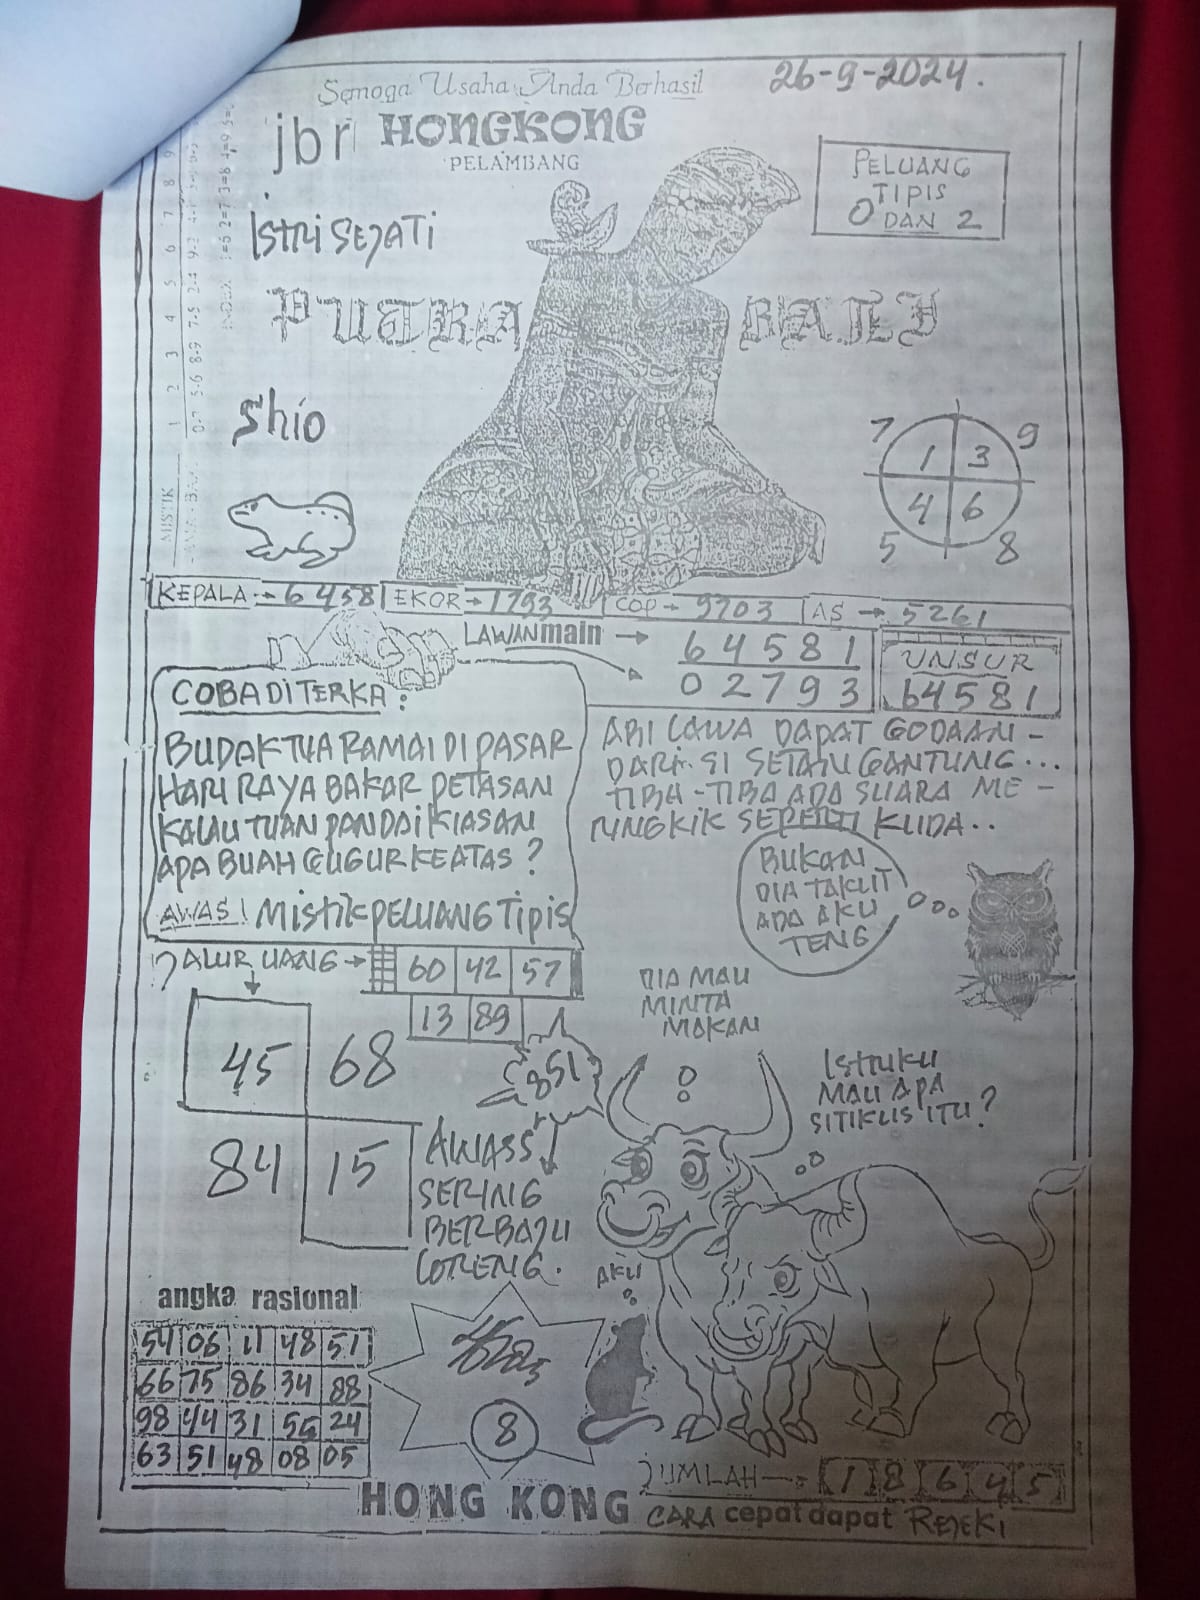 Semoga Usaha Anda Berhasil
26-9-2024.
jbr HONGKONG
PELAMBANG
PELUANG
TIPIS
0 DAN 2
Istri SEJATI
PUTRA BALI
Shio
7 9
1 3
4 6
5 8
MISTIK
INDEX
KEPALA → 6458 EKOR → 1793 COP → 9703 AS → 5261
LAWAN main → 64581
02793
UNSUR
64581
COBA DITERKA :
BUDAK TUA RAMAI DI PASAR
HARI RAYA BAKAR PETASAN
KALAU TUAN PANDAI KIASAN
APA BUAH GUGUR KEATAS ?
AWAS ! Mistik PELUANG Tipis
ABI LAWA DAPAT GODAAN -
DARI SI SETAN GANTUNG...
TIBA-TIBA ADA SUARA ME -
RINGKIK SEPERTI KUDA..
BUKAN
DIA TAKUT
ADA AKU
TENG
ALUR UANG → 60 42 57
13 89
45 68
84 15
851
AWASS
SERING
BERBAJU
LORENG.
DIA MAU
MINTA
MAKAN
ISTRIKU
MAU APA
SITIKUS ITU ?
AKU
angka rasional
54 06 11 48 51
66 75 86 34 88
98 44 31 55 24
63 51 48 08 05
8
JUMLAH → 1 8 6 4 5
HONG KONG CARA cepat dapat REJEKI